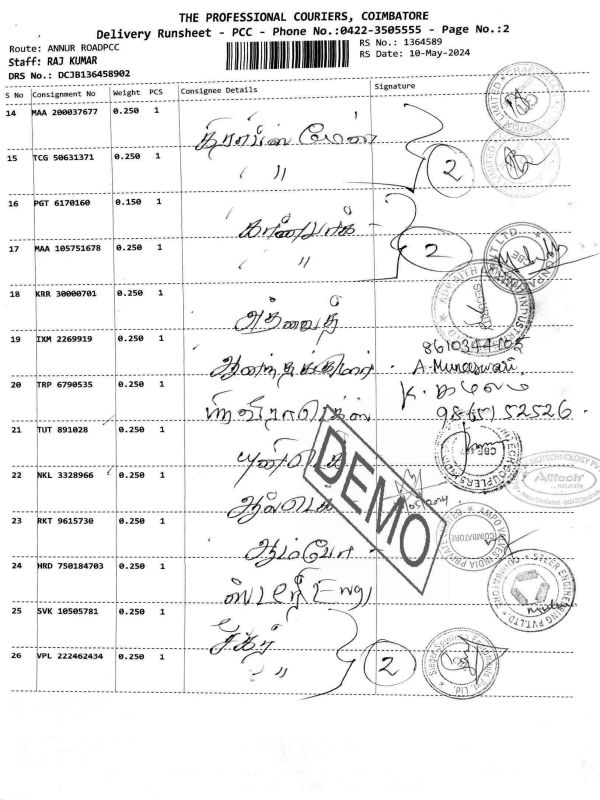 THE PROFESSIONAL COURIERS, COIMBATORE
Delivery Runsheet - PCC - Phone No.:0422-3505555 - Page No.:2
Route: ANNUR ROADPCC
RS No.: 1364589
Staff: RAJ KUMAR
RS Date: 10-May-2024
DRS No.: DCJB136458902
S No Consignment No Weight PCS Consignee Details Signature
14 MAA 200037677 0.250 1
15 TCG 50631371 0.250 1
" 2
16 PGT 6170160 0.150 1
17 MAA 105751678 0.250 1
" 2
18 KRR 30000701 0.250 1
அத்வைத்
19 IXM 2269919 0.250 1
8610344105
ஆனந்தகுமார் . A.Muneswari
20 TRP 6790535 0.250 1
K. கமலம்
9865152526.
21 TUT 891028 0.250 1
யுனிடெக்
22 NKL 3328966 0.250 1
BIOTECHNOLOGY
Alltech
...naturally
ஆல்டெக்
DEMO
23 RKT 9615730 0.250 1
COIMBATORE
ஆம்போ -
24 HRD 750184703 0.250 1
ஸ்டீர் Engg
25 SVK 10505781 0.250 1
26 VPL 222462434 0.250 1
" 2